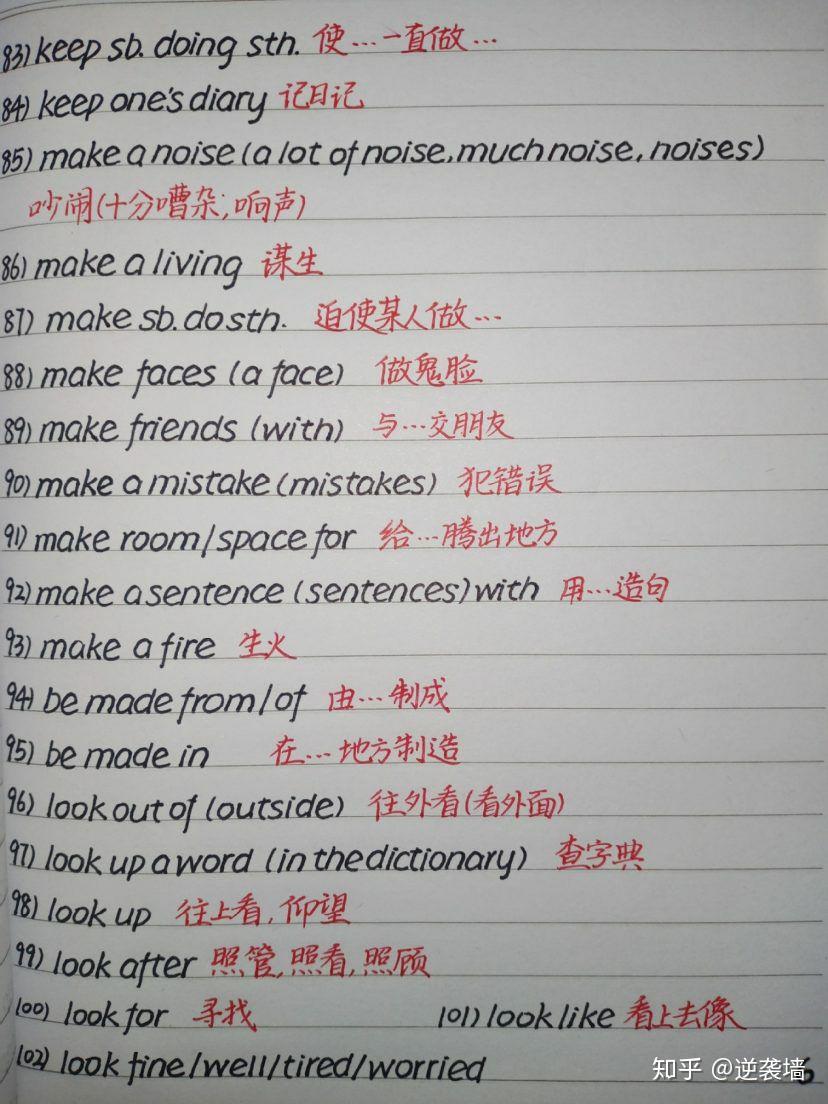 83) keep sb. doing sth. 使…一直做…
84) keep one's diary 记日记
85) make a noise (a lot of noise, much noise, noises)
吵闹(十分嘈杂,响声)
86) make a living 谋生
87) make sb. do sth. 迫使某人做…
88) make faces (a face) 做鬼脸
89) make friends (with) 与…交朋友
90) make a mistake (mistakes) 犯错误
91) make room/space for 给…腾出地方
92) make a sentence (sentences) with 用…造句
93) make a fire 生火
94) be made from/of 由…制成
95) be made in 在…地方制造
96) look out of (outside) 往外看(看外面)
97) look up a word (in the dictionary) 查字典
98) look up 往上看,仰望
99) look after 照管,照看,照顾
100) look for 寻找 101) look like 看上去像
102) look fine/well/tired/worried
知乎 @逆袭墙
6